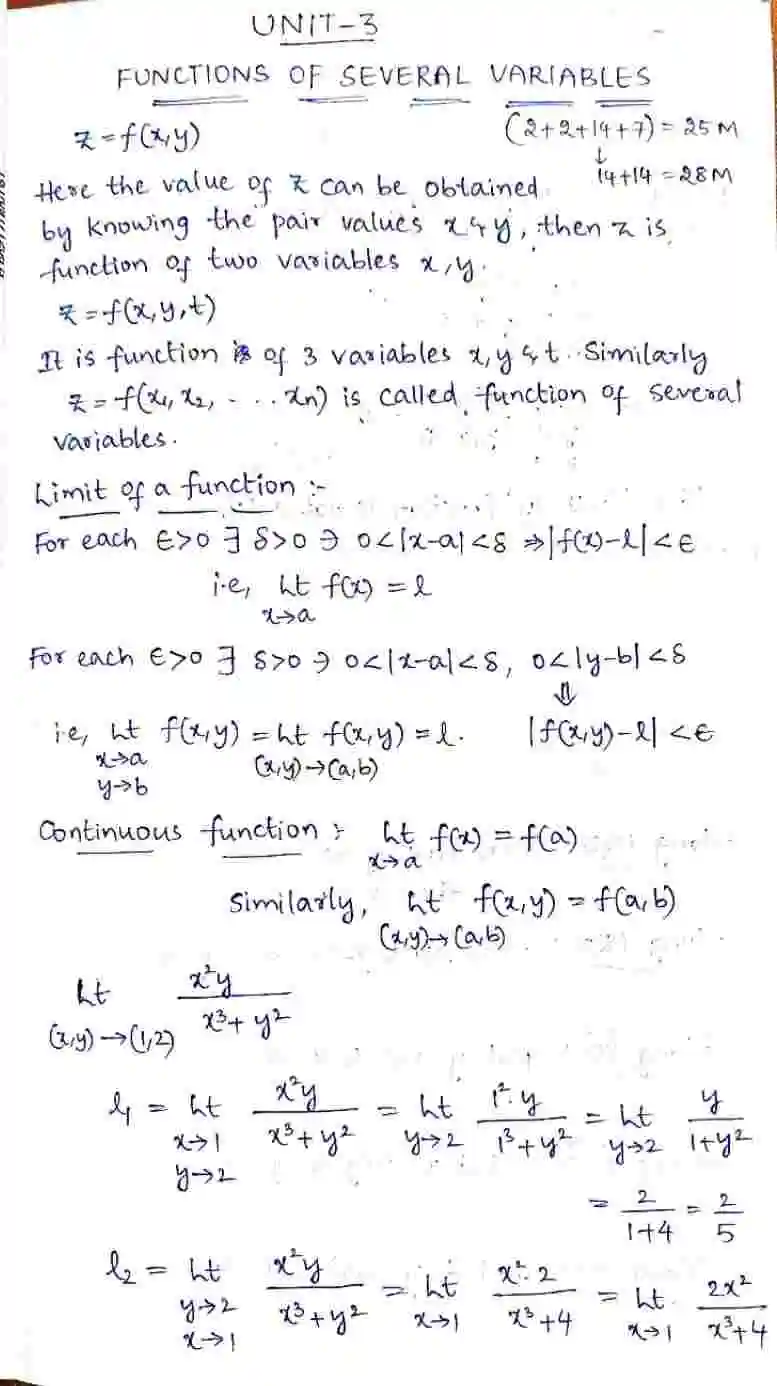 UNIT-3
FUNCTIONS OF SEVERAL VARIABLES
z = f(x,y)
(2+2+14+7) = 25M
↓
14+14 = 28M
Here the value of z can be obtained
by knowing the pair values x & y, then z is
function of two variables x, y.
z = f(x,y,t)
It is function of 3 variables x, y & t. Similarly
z = f(x₁, x₂, - ... xn) is called function of several
variables.
Limit of a function :-
For each ∈>0 ∃ δ>0 ∋ 0<|x-a|<δ ⇒ |f(x)-l|<∈
i.e, Lt f(x) = l
x→a
For each ∈>0 ∃ δ>0 ∋ 0<|x-a|<δ, 0<|y-b|<δ
⇓
i.e, Lt f(x,y) = Lt f(x,y) = l. |f(x,y)-l| <∈
x→a (x,y)→(a,b)
y→b
Continuous function :- Lt f(x) = f(a)
x→a
Similarly, Lt f(x,y) = f(a,b)
(x,y)→(a,b)
Lt x²y
x³+y²
(x,y)→(1,2)
l₁ = Lt x²y = Lt 1².y = Lt y
x→1 x³+y² y→2 1³+y² y→2 1+y²
y→2
= 2 = 2
1+4 5
l₂ = Lt x²y = Lt x².2 = Lt 2x²
y→2 x³+y² x→1 x³+4 x→1 x³+4
x→1